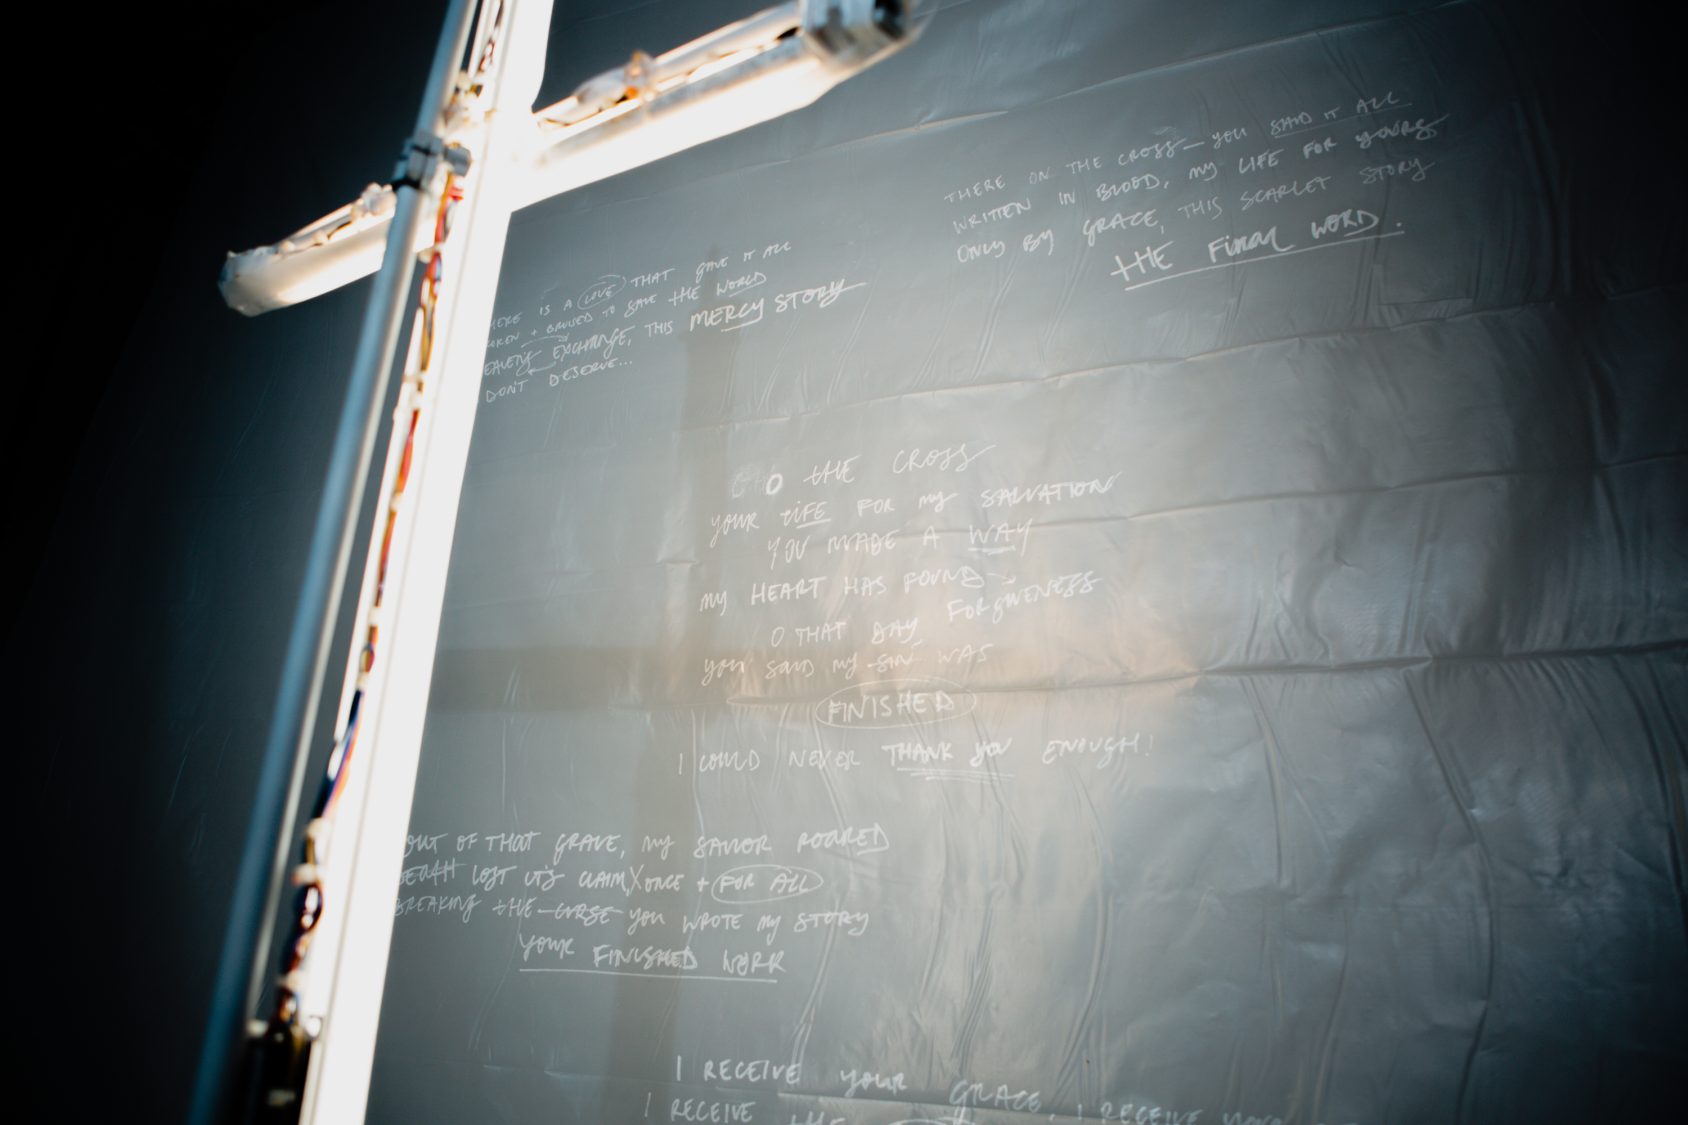 THERE ON THE CROSS—YOU SAID IT ALL
WRITTEN IN BLOOD, MY LIFE FOR YOURS
ONLY BY GRACE, THIS SCARLET STORY
THE FINAL WORD.
IS A LOVE THAT GAVE IT ALL
+ BRUISED TO SAVE THE WORLD
EXCHANGE, THIS MERCY STORY
DON'T DESERVE...
O THE CROSS
YOUR LIFE FOR MY SALVATION
YOU MADE A WAY
MY HEART HAS FOUND
FORGIVENESS
O THAT DAY
YOU SAID MY SIN WAS
FINISHED
I COULD NEVER THANK YOU ENOUGH!
OUT OF THAT GRAVE, MY SAVIOR ROARED
DEATH LOST IT'S CLAIM, ONCE + FOR ALL
BREAKING THE CURSE YOU WROTE MY STORY
YOUR FINISHED WORK
I RECEIVE YOUR GRACE, I RECEIVE YOUR
I RECEIVE THE